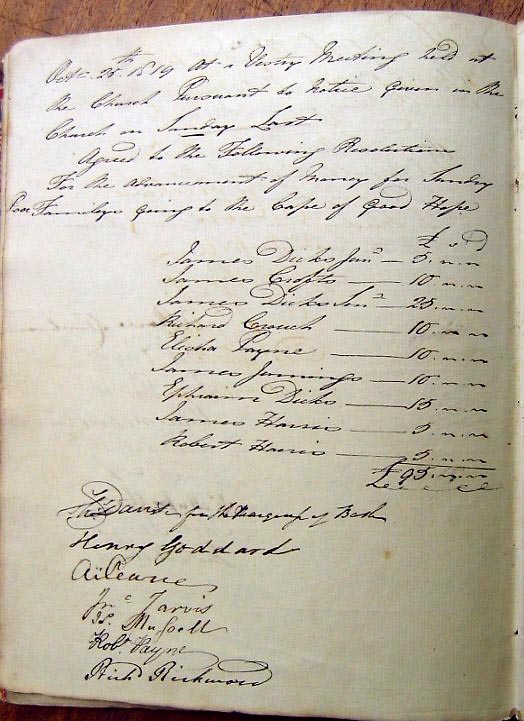 Octr 25th 1819 At a Vestry Meeting held at
the Church Pursuant to Notice Given in the
Church on Sunday Last
Agreed to the Following Resolution
For the Advancement of Money for Sundry
Poor Familys going to the Cape of Good Hope
£ s D
James Dicks Junr — 5 " "
James Crofts — 10 " "
James Dicks Senr — 25 " "
Richard Crouch — 10 " "
Elisha Payne — 10 " "
James Jennings — 10 " "
Ephraim Dicks — 15 " "
James Harris — 5 " "
Robert Harris — 5 " "
£ 95 " "
Davis for the Marquis of Bath
Henry Goddard
Jarvis
Robt Payne
Richd Rickword